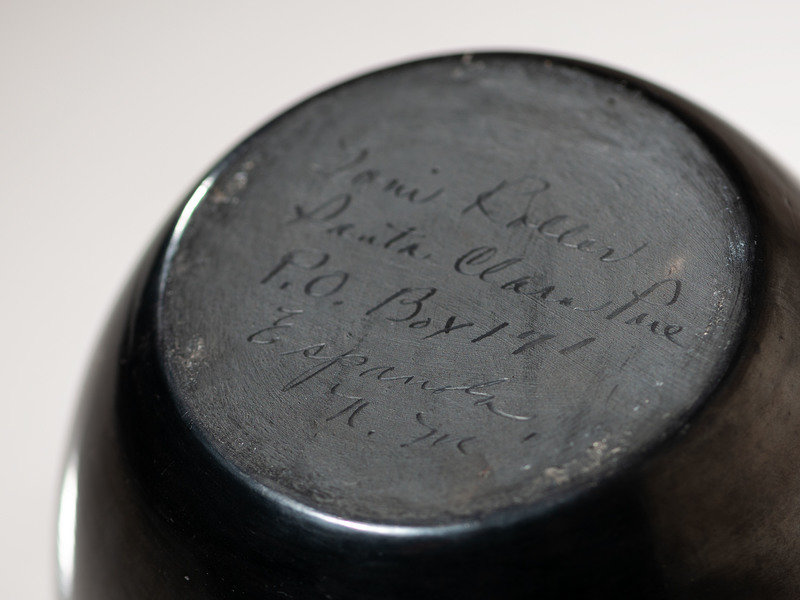 Toni Roller
Santa Clara Pue
P.O. Box 171
Española,
N. Me